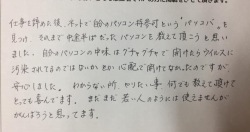 仕事を辞めた後、ネットで自分のパソコン持参可というパソコンパルを
見つけ それまで中途半ぱだったパソコンを教えて貰うと思い
ました。自分のパソコンの中味はグチャグチャで開けたらウイルスに
汚染されてるのではないかとか心配で開けなかったのですが
安心しました。わからない所、やりたい事、何でも教えて頂けて
とっても喜んでます。まだまだ若い人のようには使えませんが
がんばろうと思ってます。